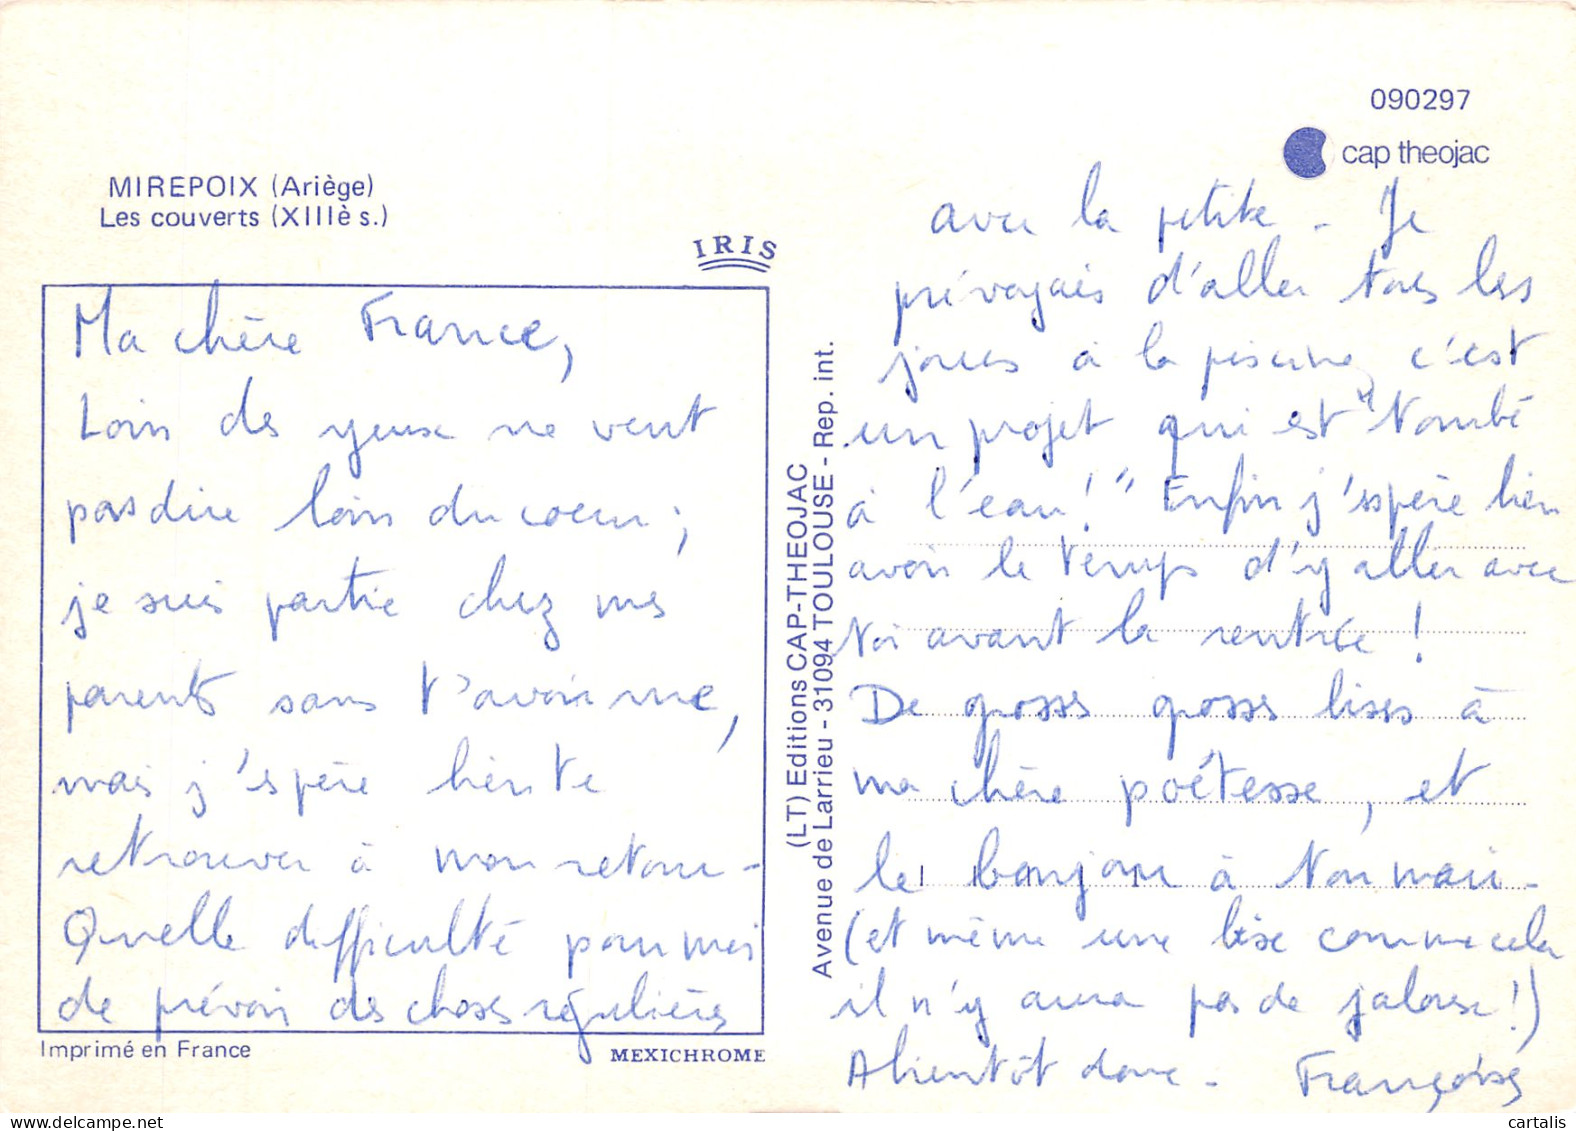 MIREPOIX (Ariège)
Les couverts (XIIIè s.)
IRIS
Ma chère France,
Loin des yeux ne veut
pas dire loin du coeur ;
je suis partie chez mes
parents sans t'avoir vue,
mais j'espère bien te
retrouver à mon retour -
Quelle difficulté pour moi
de prévoir des choses régulières
Imprimé en France
MEXICHROME
(LT) Editions CAP-THEOJAC
Avenue de Larrieu - 31094 TOULOUSE - Rep. int.
090297
cap theojac
avec la petite - Je
prévoyais d'aller tous les
jours à la piscine, c'est
un projet qui est "tombé
à l'eau !" Enfin j'espère bien
avoir le temps d'y aller avec
toi avant la rentrée !
De grosses grosses bises à
ma chère poétesse, et
le bonjour à ton mari -
(et même une bise comme cela
il n'y aura pas de jalouse !)
A bientôt donc - Françoise
cartalis